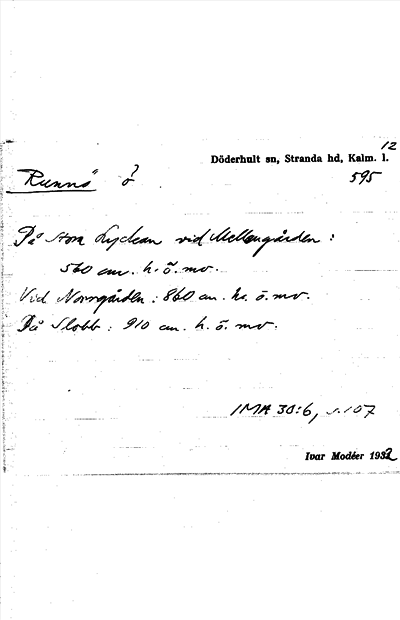 12
Döderhult sn, Stranda hd, Kalm. l.
Runnö ö
595
På Stora Lyckan vid Mellangården :
560 cm. h. ö. mv.
Vid Norrgården : 860 cm. h. ö. mv.
På Slobb : 910 cm. h. ö. mv.
IMA 30:6, s. 107
Ivar Modéer 1932